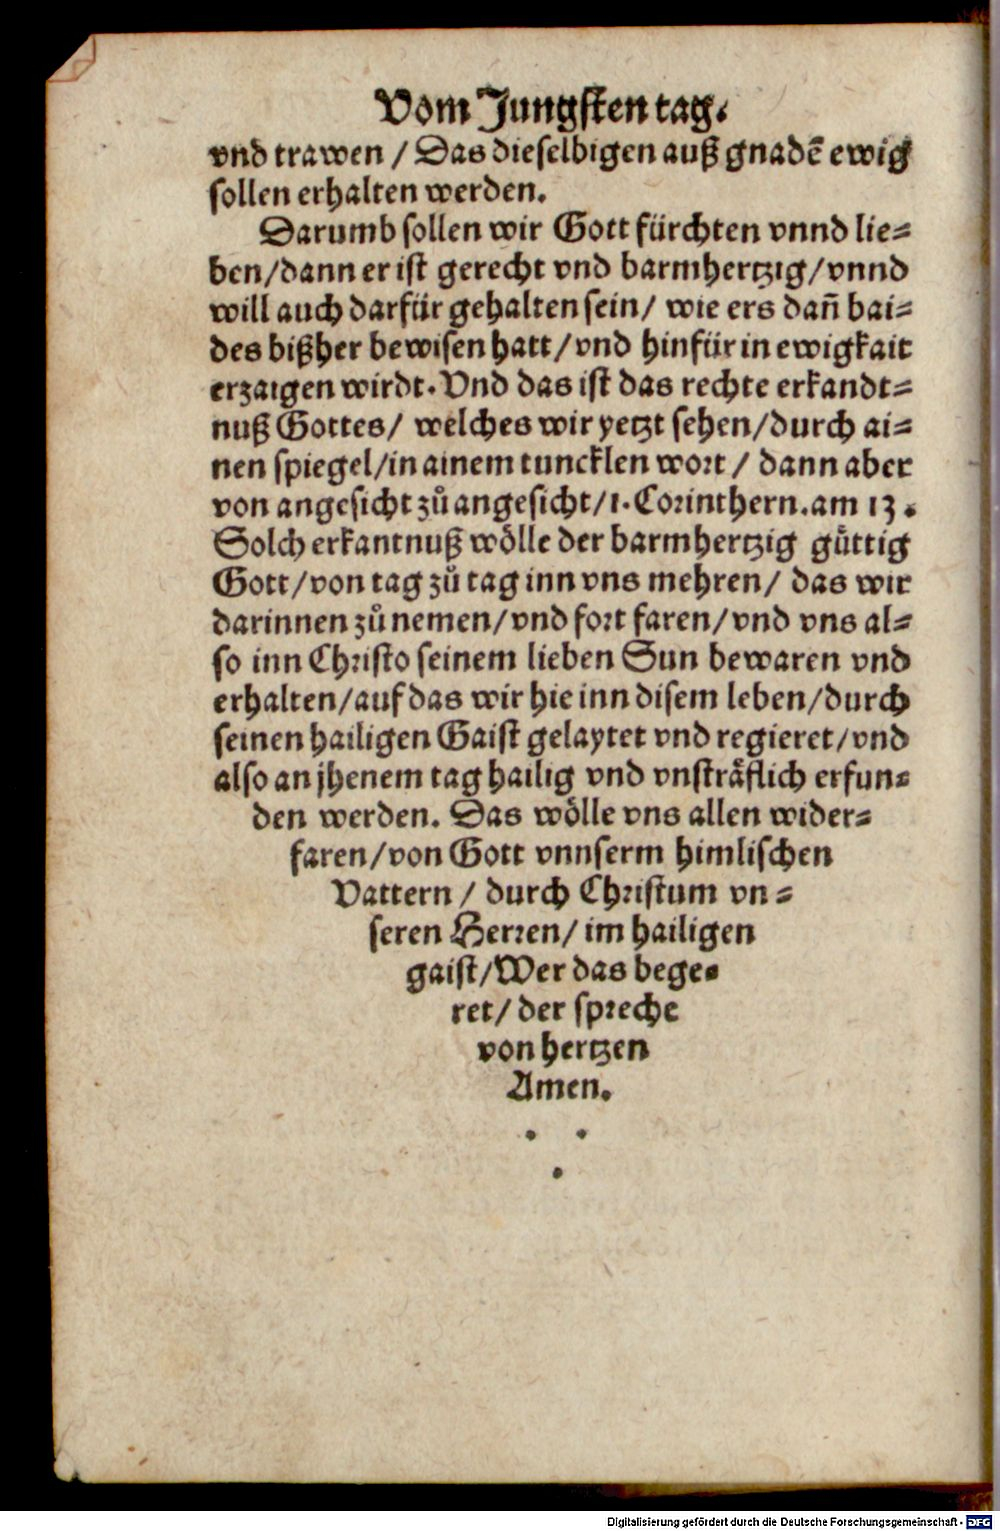 Vom Jungſten tag.
vnd trawen / Das dieſelbigen auß gnadē ewig
ſollen erhalten werden.
Darumb ſollen wir Gott fürchten vnnd lie⸗
ben/dann er iſt gerecht vnd barmhertzig/vnnd
will auch darfür gehalten ſein/ wie ers dañ bai⸗
des bißher bewiſen hatt/vnd hinfür in ewigkait
erzaigen wirdt. Vnd das iſt das rechte erkandt⸗
nuß Gottes/ welches wir yetzt ſehen/durch ai⸗
nen ſpiegel/in ainem tuncklen wort / dann aber
von angeſicht zů angeſicht/1. Corinthern.am 13.
Solch erkantnuß wölle der barmhertzig güttig
Gott/von tag zů tag inn vns mehren/ das wir
darinnen zů nemen/vnd fort faren/vnd vns al⸗
ſo inn Chriſto ſeinem lieben Sun bewaren vnd
erhalten/auf das wir hie inn diſem leben/durch
ſeinen hailigen Gaiſt gelaytet vnd regieret/vnd
alſo an jhenem tag hailig vnd vnſträflich erfun⸗
den werden. Das wölle vns allen wider⸗
faren/von Gott vnnſerm himliſchen
Vattern / durch Chriſtum vn⸗
ſeren Herren/ im hailigen
gaiſt/Wer das bege⸗
ret/ der ſpreche
von hertzen
Amen.
Digitalisierung gefördert durch die Deutsche Forschungsgemeinschaft - DFG